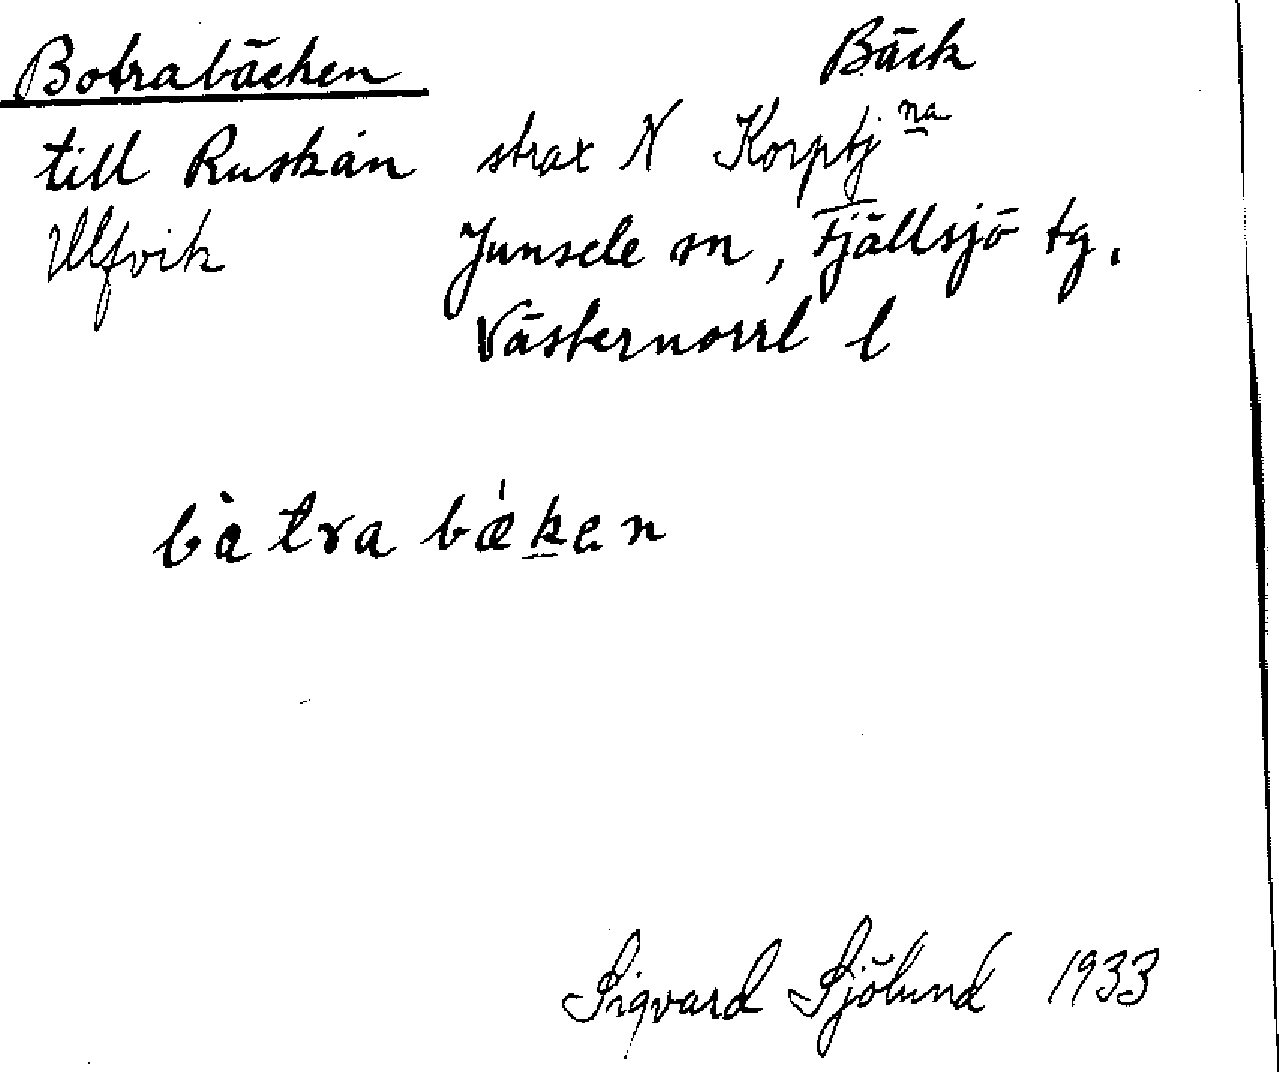 Botrabäcken Bäck
till Ruskån strax N Korptjna
Ulfvik Junsele sn, Fjällsjö tg.
Västernorrl l
bàtra bǽken
Sigvard Sjölund 1933